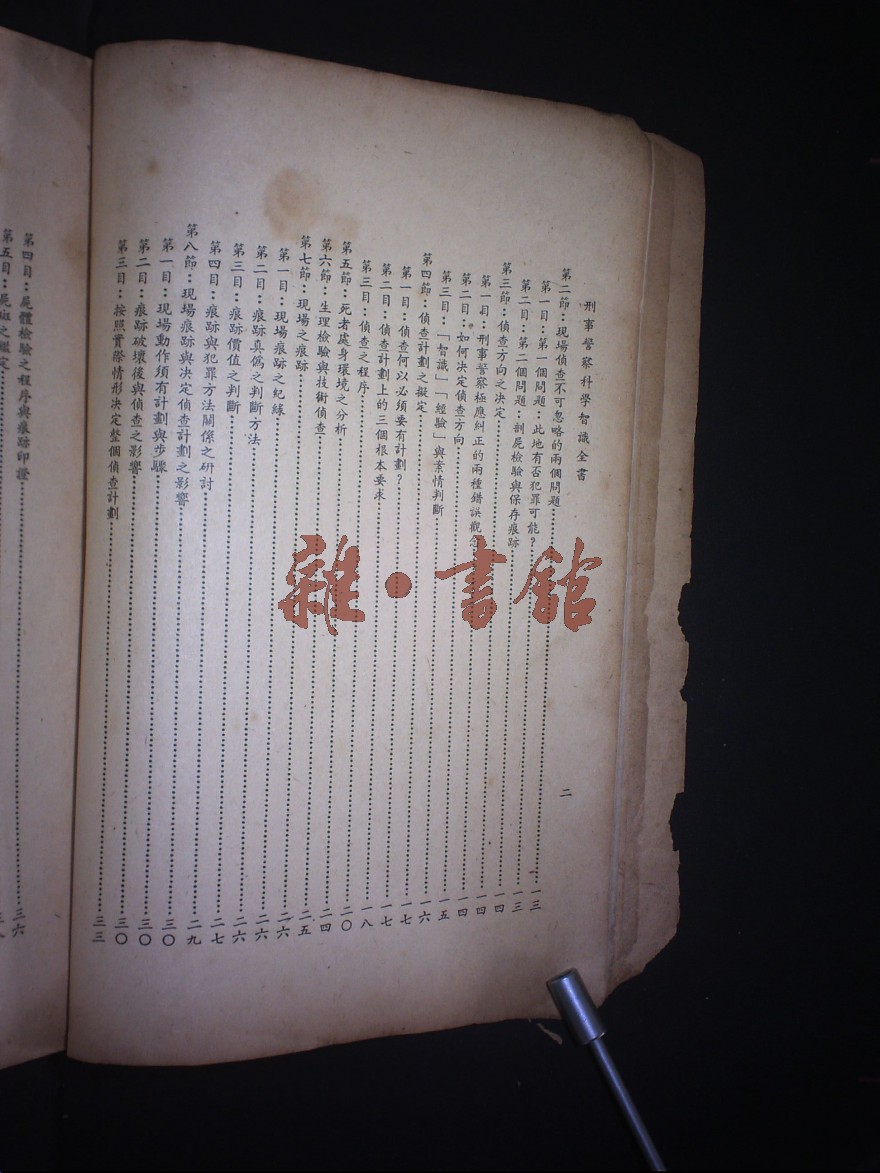 刑事警察科學智識全書
二
第二節:現場偵查不可忽略的兩個問題……一三
第一目:第一個問題:此地有否犯罪可能?……一三
第二目:第二個問題:剖屍檢驗與保存痕跡……一四
第三節:偵查方向之決定……一四
第一目:刑事警察極應糾正的兩種錯誤觀念……一四
第二目:如何決定偵查方向……一五
第三目:「智識」「經驗」與案情判斷……一六
第四節:偵查計劃之擬定……一七
第一目:偵查何以必須要有計劃?……一七
第二目:偵查計劃上的三個根本要求……一八
第三目:偵查之程序……二〇
第五節:死者處身環境之分析……二四
第六節:生理檢驗與技術偵查……二五
第七節:現場之痕跡……二六
第一目:現場痕跡之紀錄……二六
第二目:痕跡真偽之判斷方法……二六
第三目:痕跡價值之判斷……二七
第四目:痕跡與犯罪方法關係之研討……二九
第八節:現場痕跡與決定偵查計劃之影響……三〇
第一目:現場動作須有計劃與步驟……三〇
第二目:痕跡破壞後與偵查之影響……三〇
第三目:按照實際情形決定整個偵查計劃……三三
第四目:屍體檢驗之程序與痕跡印證……三六
第五目:屍斑之鑑定……
雜·書館